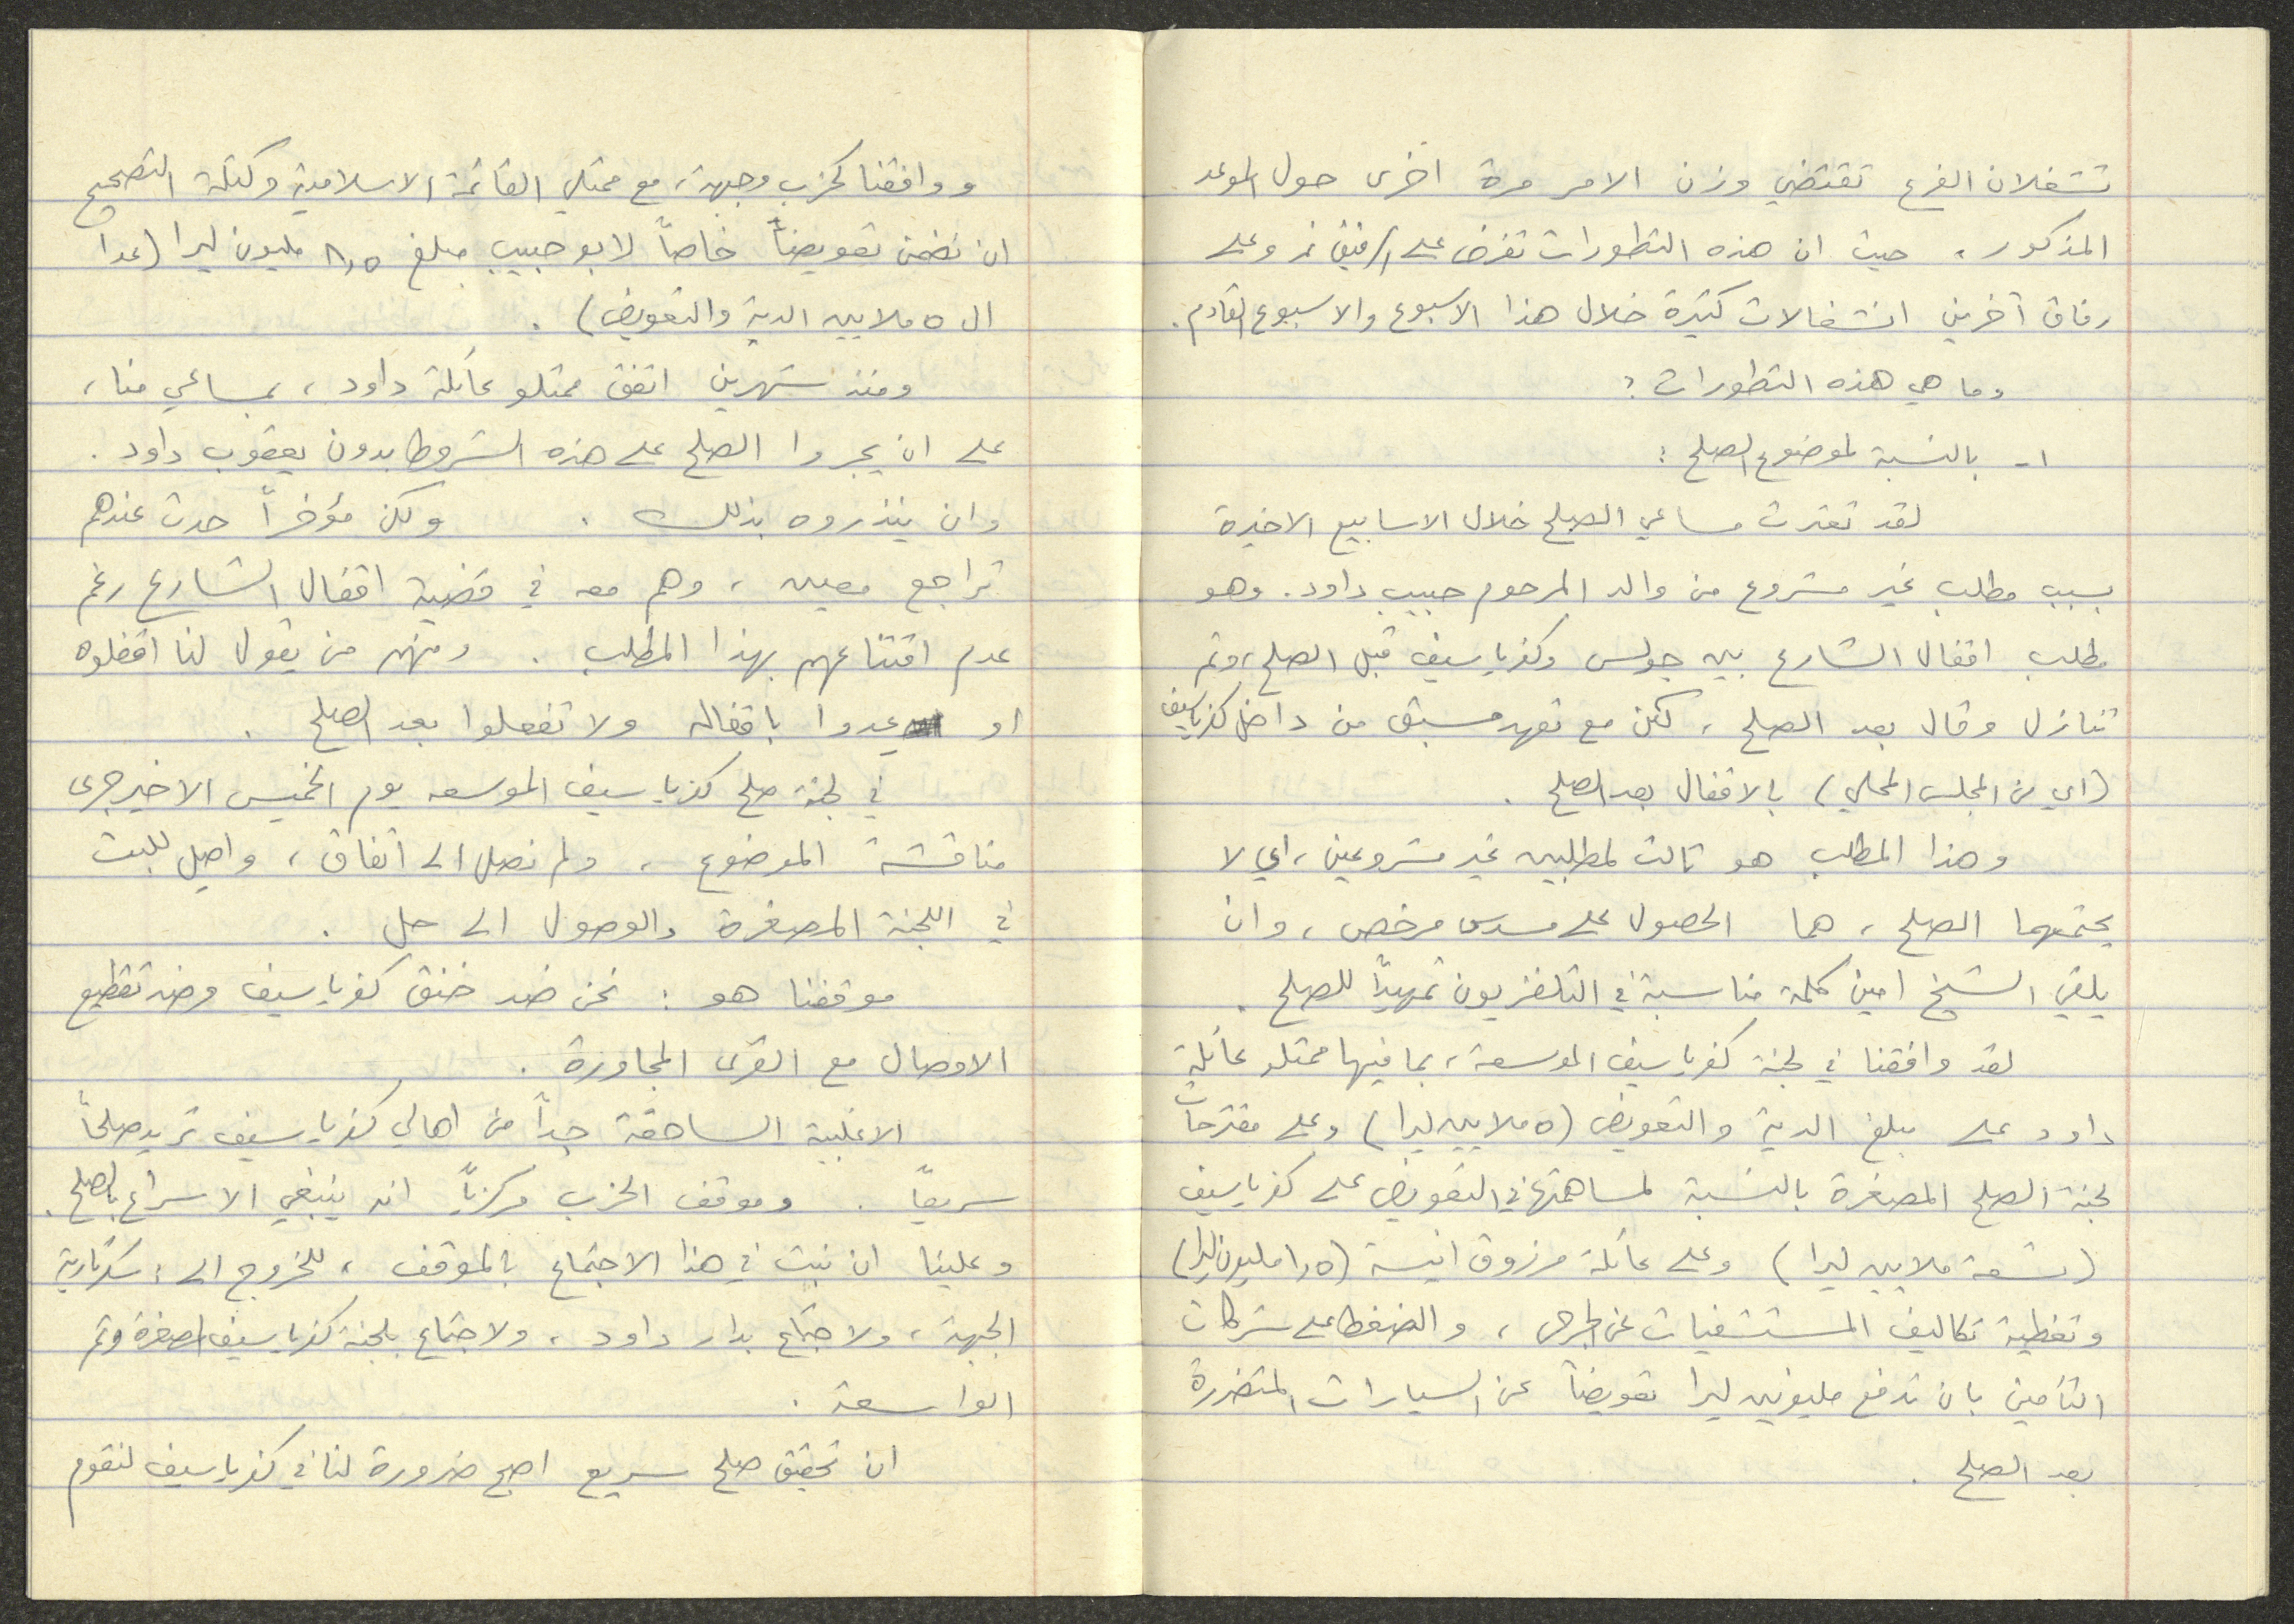 تشغلان الفرع تقتضي وزن الامر مرة اخرى حول الموعد
المذكور، حيث ان هذه التطورات تفرض على الرفيق نمر وعلى
رفاق آخرين انشغالات كثيرة خلال هذا الاسبوع والاسبوع القادم.
وما هي هذه التطورات؟
١- بالنسبة لموضوع الصلح:
لقد تعثرت مساعي الصلح خلال الاسابيع الاخيرة
بسبب مطلب غير مشروع من والد المرحوم حبيب داود. وهو
مطلب اقفال الشارع بين جولس وكفرياسيف قبل الصلح، وتم
تنازل وقال بعد الصلح، لكن مع تعهد مسبق من داخل كفرياسيف
(اي من المجلس المحلي) بالاقفال بعد الصلح.
وهذا المطلب هو ثالث لمطلبين غير مشروعين، اي لا
يحتمهما الصلح، هما الحصول على مسدس مرخص، وان
يلقي الشيخ امين كلمة مناسبة في التلفزيون تمهيداً للصلح.
لقد وافقنا في لجنة كفرياسيف الموسعة، بما فيها ممثلو عائلة
داود على مبلغ الدية والتعويض (٥ ملايين ليرا) وعلى مقترحات
لجنة الصلح المصغرة بالنسبة لمساهمتها في التعويض على كفرياسيف
(تسعة ملايين ليرا) وعلى عائلة مرزوق انيسة (١٫٥ مليون ليرا)
وتغطية تكاليف المستشفيات عن الجرحى، والضغط على شركات
التأمين بان تدفع مليونين ليرا تعويضاً عن السيارات المتضررة
بعد الصلح.
ووافقنا كحزب وجبهة، مع ممثلي القائمة الاسلامية وكتلة التصحيح
ان نضمن تعويضاً خاصاً لابو حبيب مبلغ ٨٫٥ مليون ليرا (عدا
ال ٥ ملايين الدية والتعويض).
ومنذ شهرين اتفق ممثلو عائلة داود، بمساعي منا،
على ان يجروا الصلح على هذه الشروط بدون يعقوب داود.
وان ينذروه بذلك. ولكن مؤخراً حدث عندهم
تراجع معين، وهم معه في قضية اقفال الشارع رغم
عدم اقتناعهم بهذا المطلب. ومنهم من يقول لنا اقفلوه
او عدوا باقفاله ولا تفعلوا بعد الصلح.
في لجنة صلح كفرياسيف الموسعه يوم الخميس الاخير جرى
مناقشة الموضوع، ولم نصل الى اتفاق، واحيل للبت
في اللجنة المصغرة والوصول الى حل.
موقفنا هو: نحن ضد خنق كفرياسيف وضد تقطيع
الاوصال مع القرى المجاورة.
الاغلبية الساحقة جداً من اهالي كفرياسيف تريد صلحاً
سريعاً. وموقف الحزب مركزياً انه ينبغي الاسراع بالصلح.
وعلينا ان نبت في هذا الاجتماع بالموقف، للخروج الى: سكرتارية
الجبهة، ولاجتماع بدار داود، ولاجتماع بلجنة كفرياسيف المصغرة وتم
الواسعة.
ان تحقيق صلح سريع اصبح ضرورة لنا في كفرياسيف لنقوم